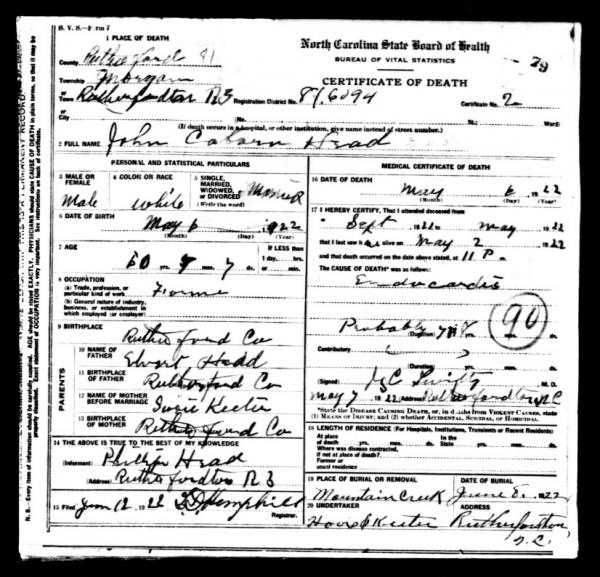 B. V. S.—Form 7
1 PLACE OF DEATH
County Rutherford 81
Township Morgan
or Town Rutherfordton R3
or City
North Carolina State Board of Health
BUREAU OF VITAL STATISTICS
CERTIFICATE OF DEATH
Registration District No. 81/6094
Certificate No. 2
No. St.; Ward)
(If death occurs in a hospital, or other institution, give name instead of street number.)
2 FULL NAME John Head
PERSONAL AND STATISTICAL PARTICULARS
3 MALE OR FEMALE
Male
4 COLOR OR RACE
white
5 SINGLE, MARRIED, WIDOWED, or DIVORCED Married
(Write the word)
6 DATE OF BIRTH
May 6 1922
(Month) (Day) (Year)
7 AGE
60 yrs. 9 mos. 7 ds.
If LESS than
1 day, hrs.
or min.
8 OCCUPATION
(a) Trade, profession, or
particular kind of work
(b) General nature of industry,
business, or establishment in
which employed (or employer)
9 BIRTHPLACE Rutherford Co
PARENTS
10 NAME OF FATHER Head
11 BIRTHPLACE OF FATHER Rutherford Co
12 NAME OF MOTHER BEFORE MARRIAGE Suzie Keeter
13 BIRTHPLACE OF MOTHER Rutherford Co
14 THE ABOVE IS TRUE TO THE BEST OF MY KNOWLEDGE
(Informant) Phillip Head
(Address) Rutherfordton R 3
15 Filed June 12 1922 Hemphill
Registrar.
MEDICAL CERTIFICATE OF DEATH
16 DATE OF DEATH
May 6 1922
(Month) (Day) (Year)
17 I HEREBY CERTIFY, That I attended deceased from
Sept 1922 to May 1922
that I last saw h alive on May 2 1922
and that death occurred on the date above stated, at 11 P m.
The CAUSE OF DEATH* was as follows:
Endocarditis
Probably
90
(Duration) yrs. mos. ds.
Contributory
(Duration) yrs. mos. ds.
(Signed) Swift, M. D.
May 7 1922 (Address) Rutherfordton N.C.
*State the DISEASE CAUSING DEATH, or, in deaths from VIOLENT CAUSES, state
(1) MEANS OF INJURY; and (2) whether ACCIDENTAL, SUICIDAL, or HOMICIDAL.
18 LENGTH OF RESIDENCE (For Hospitals, Institutions, Transients or Recent Residents)
At place of death yrs. mos. ds.
Where was disease contracted,
if not at place of death?
Former or
usual residence
19 PLACE OF BURIAL OR REMOVAL
Mountain Creek
DATE OF BURIAL
June 8 1922
20 UNDERTAKER
Keeter Rutherfordton,
N.C.